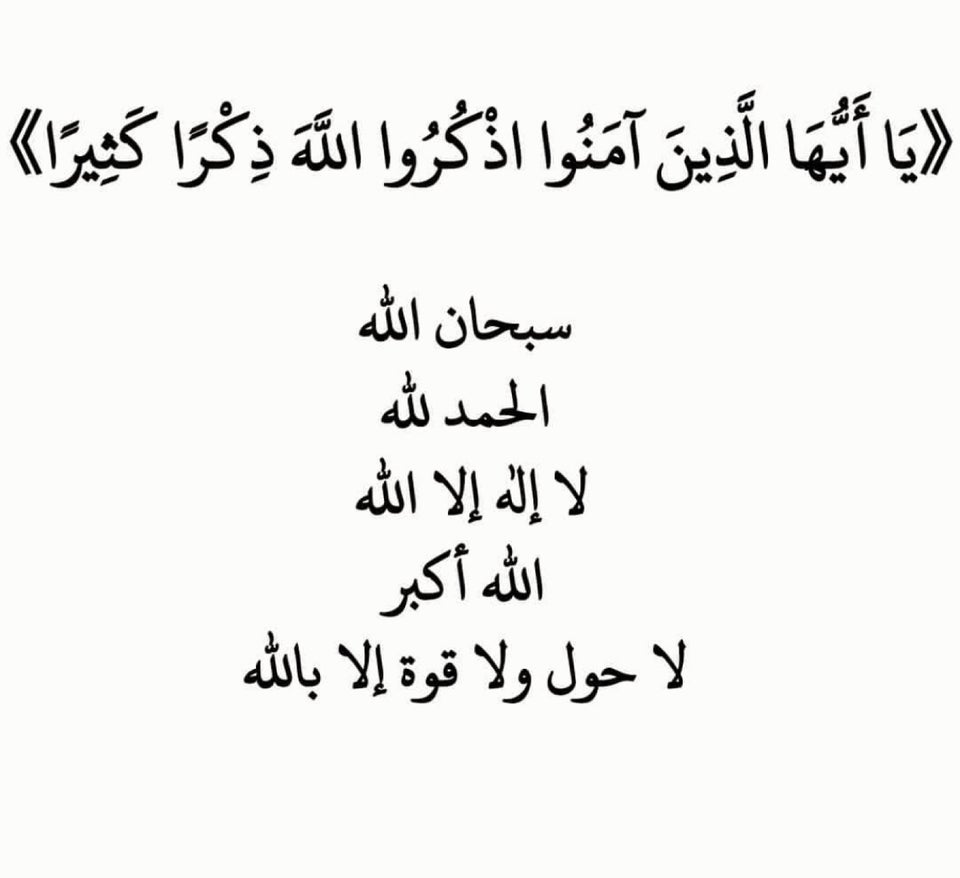 《يَا أَيُّهَا الَّذِينَ آمَنُوا اذْكُرُوا اللَّهَ ذِكْرًا كَثِيرًا》
سبحان الله
الحمد لله
لا إلٰه إلا الله
الله أكبر
لا حول ولا قوة إلا بالله